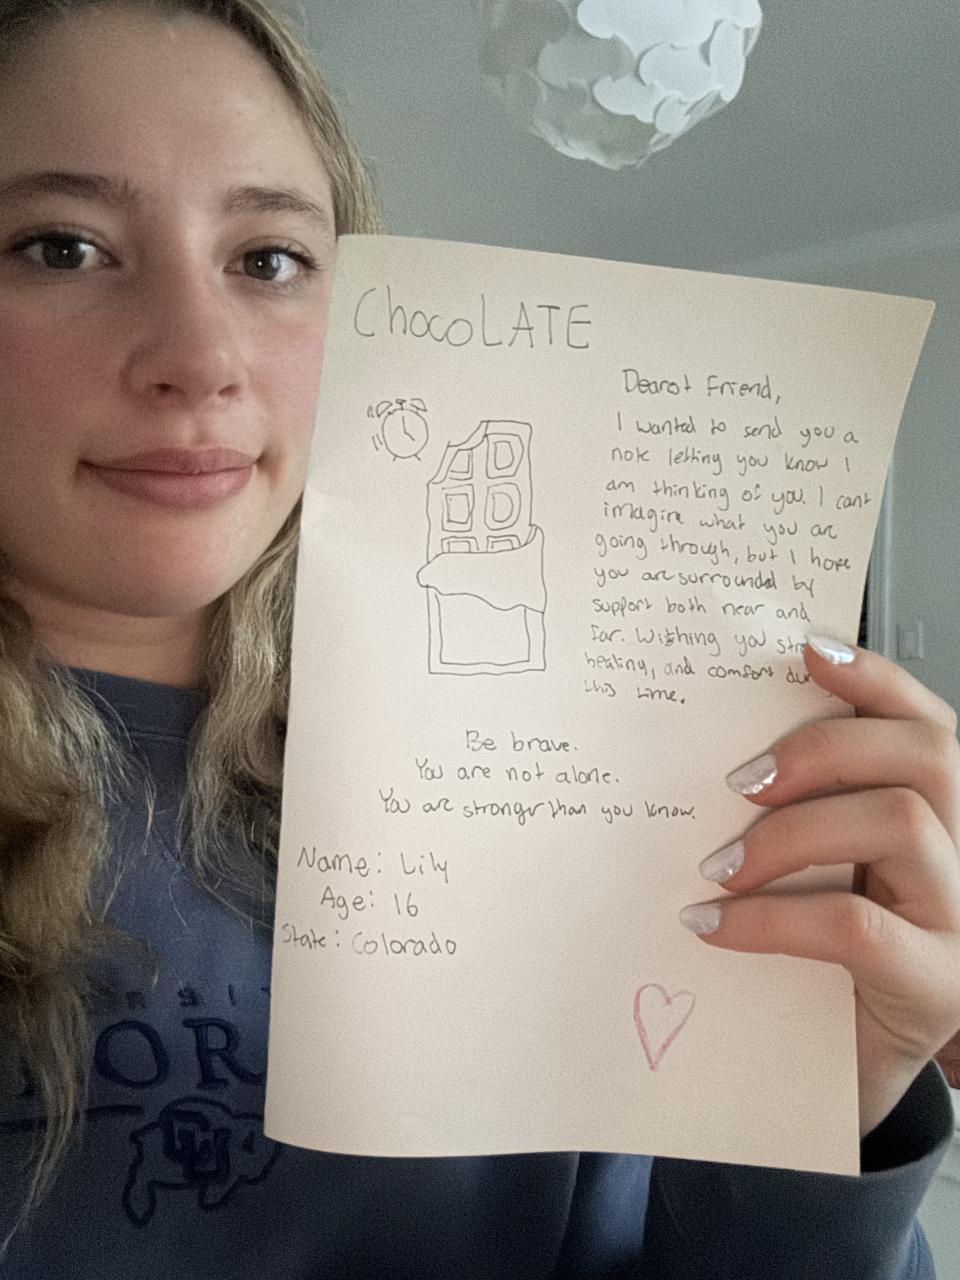 ChocoLATE
Dearest Friend,
I wanted to send you a
note letting you know I
am thinking of you. I cant
imagine what you are
going through, but I hope
you are surrounded by
support both near and
far. Wishing you
healing, and comfort
this time.
Be brave.
You are not alone.
You are stronger than you know.
Name: Lily
Age: 16
State: Colorado
OR
CU